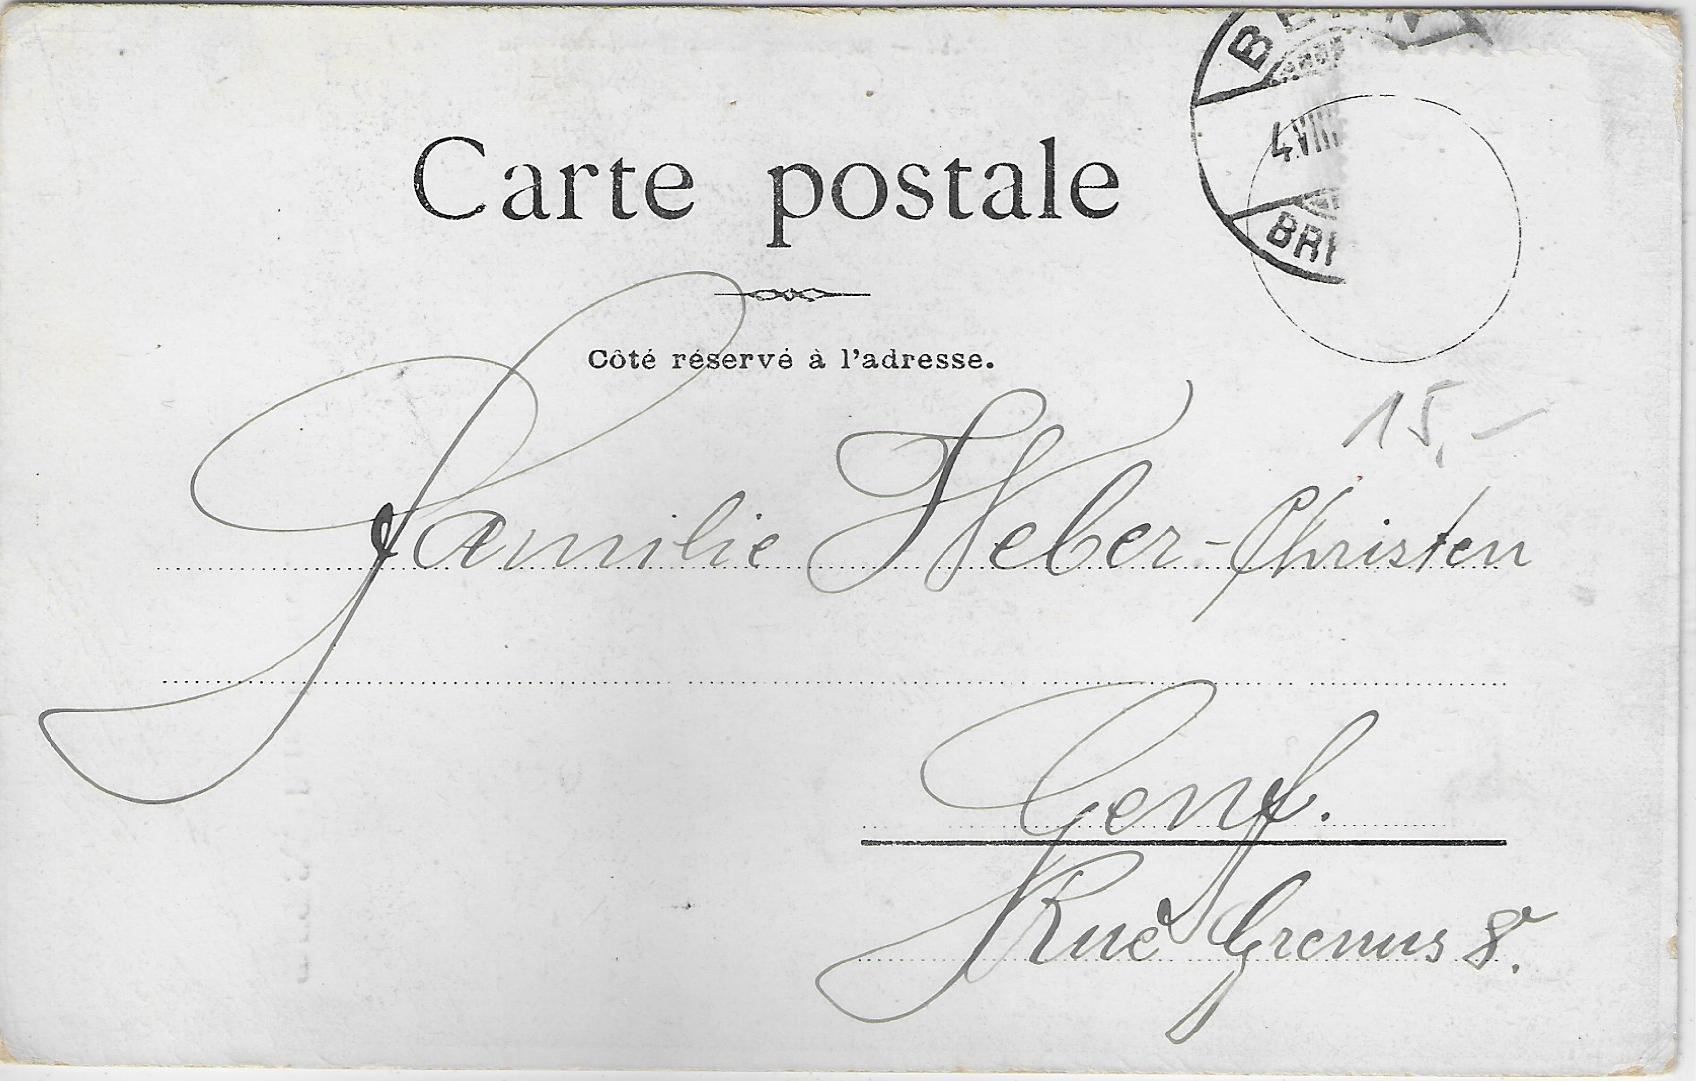 BERN
4.VIII
BRI
Carte postale
Côté réservé à l'adresse.
15,-
Familie Weber-Christen
Genf.
Rue Grenus 8.